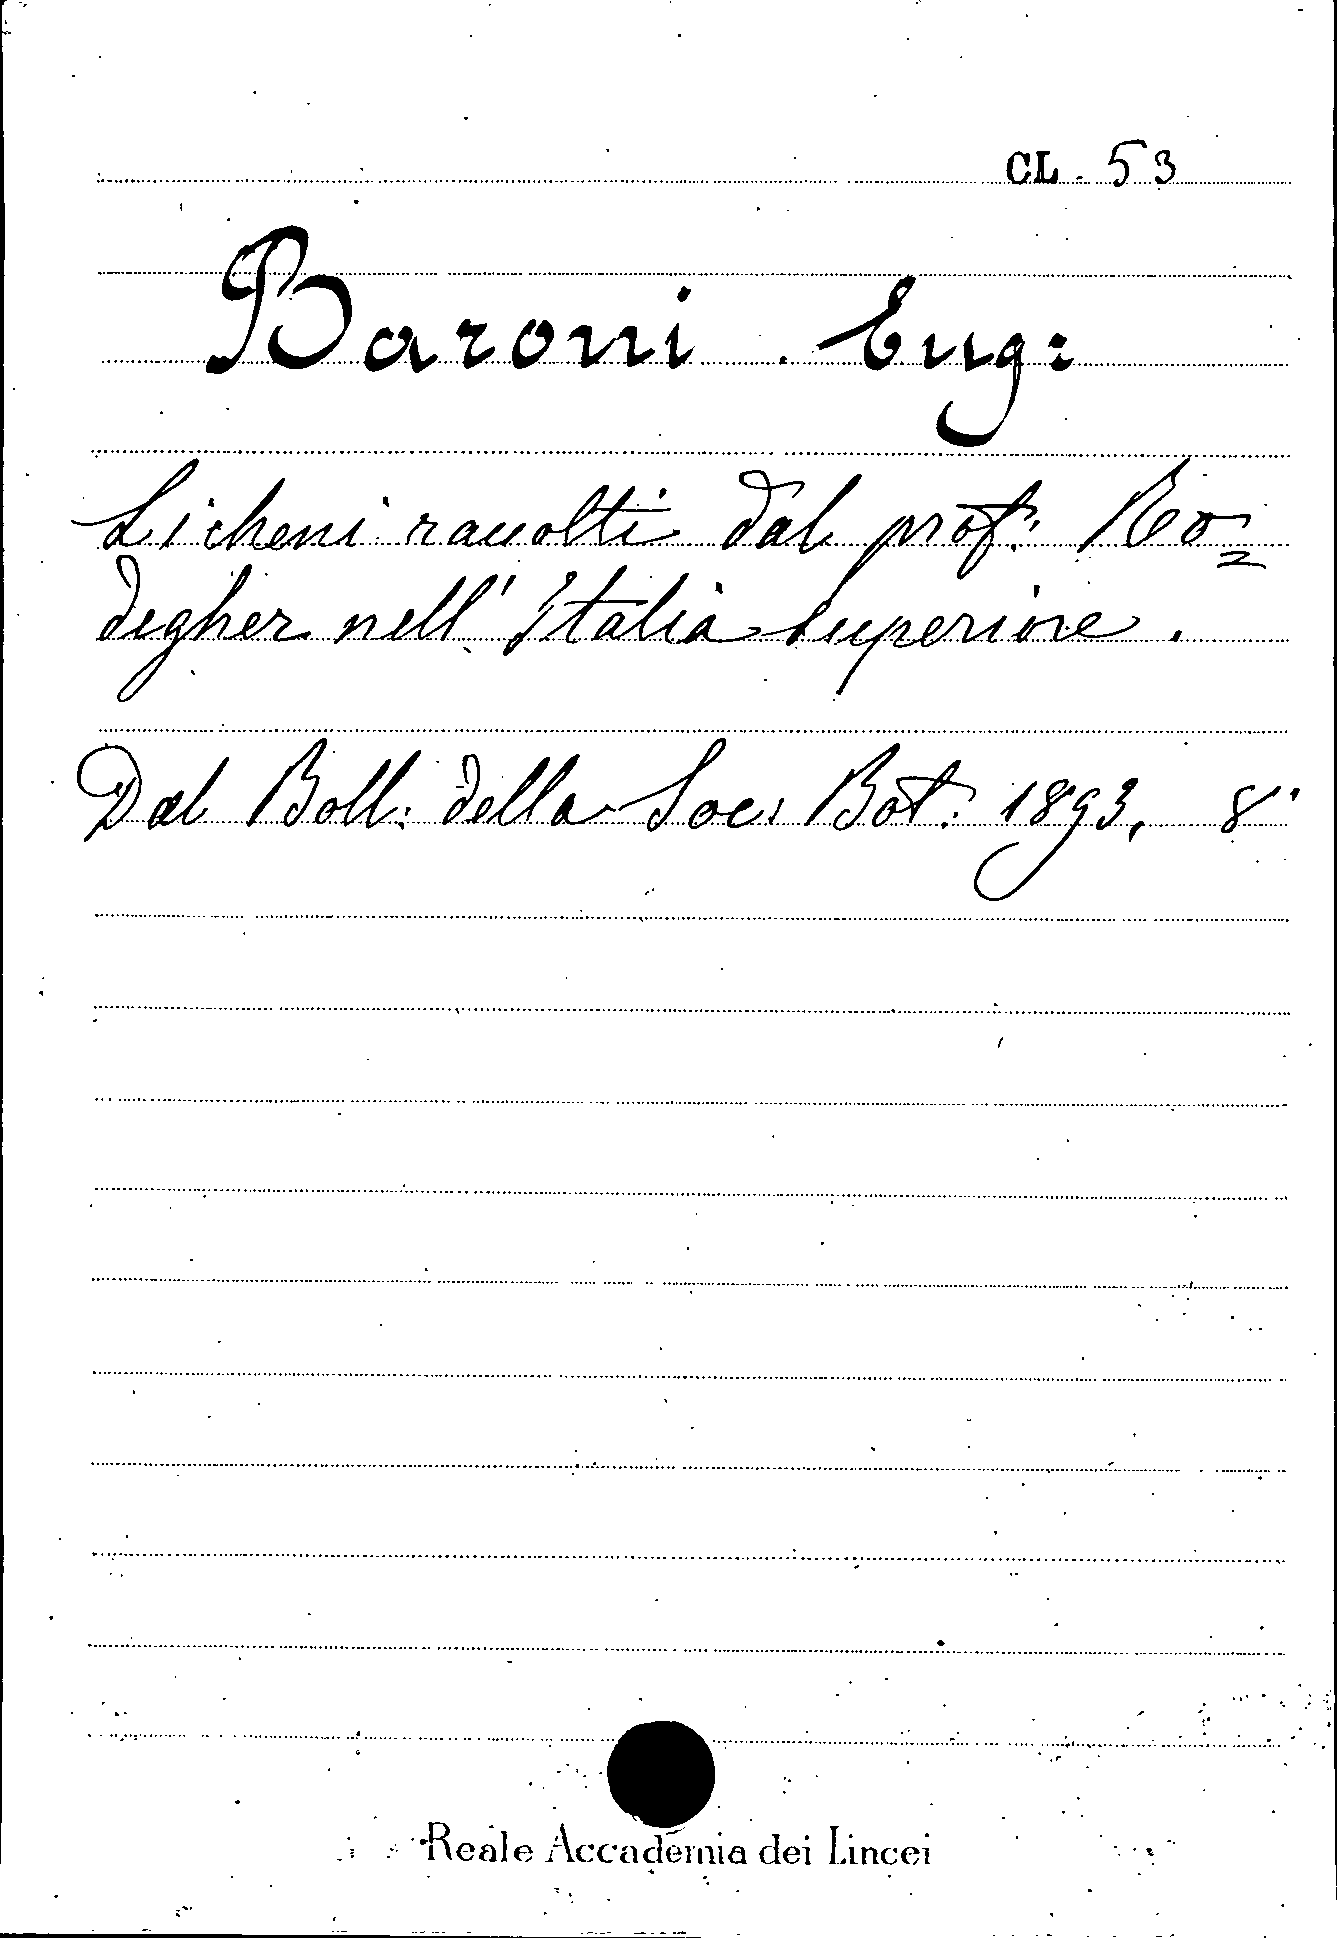 CL. 53
Baroni Eug:
Licheni raccolti dal prof: Ro=
degher nell' Italia superiore.
Dal Boll: della Soc: Bot: 1893, 8°
Reale Accademia dei Lincei